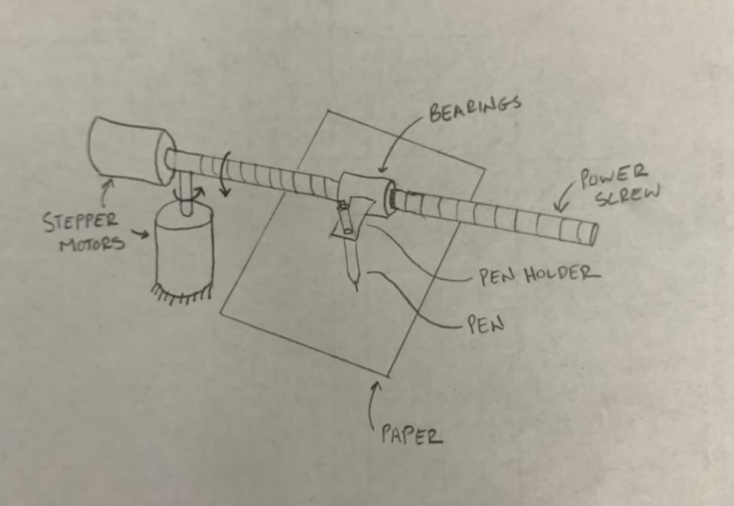 BEARINGS
POWER
SCREW
STEPPER
MOTORS
PEN HOLDER
PEN
PAPER